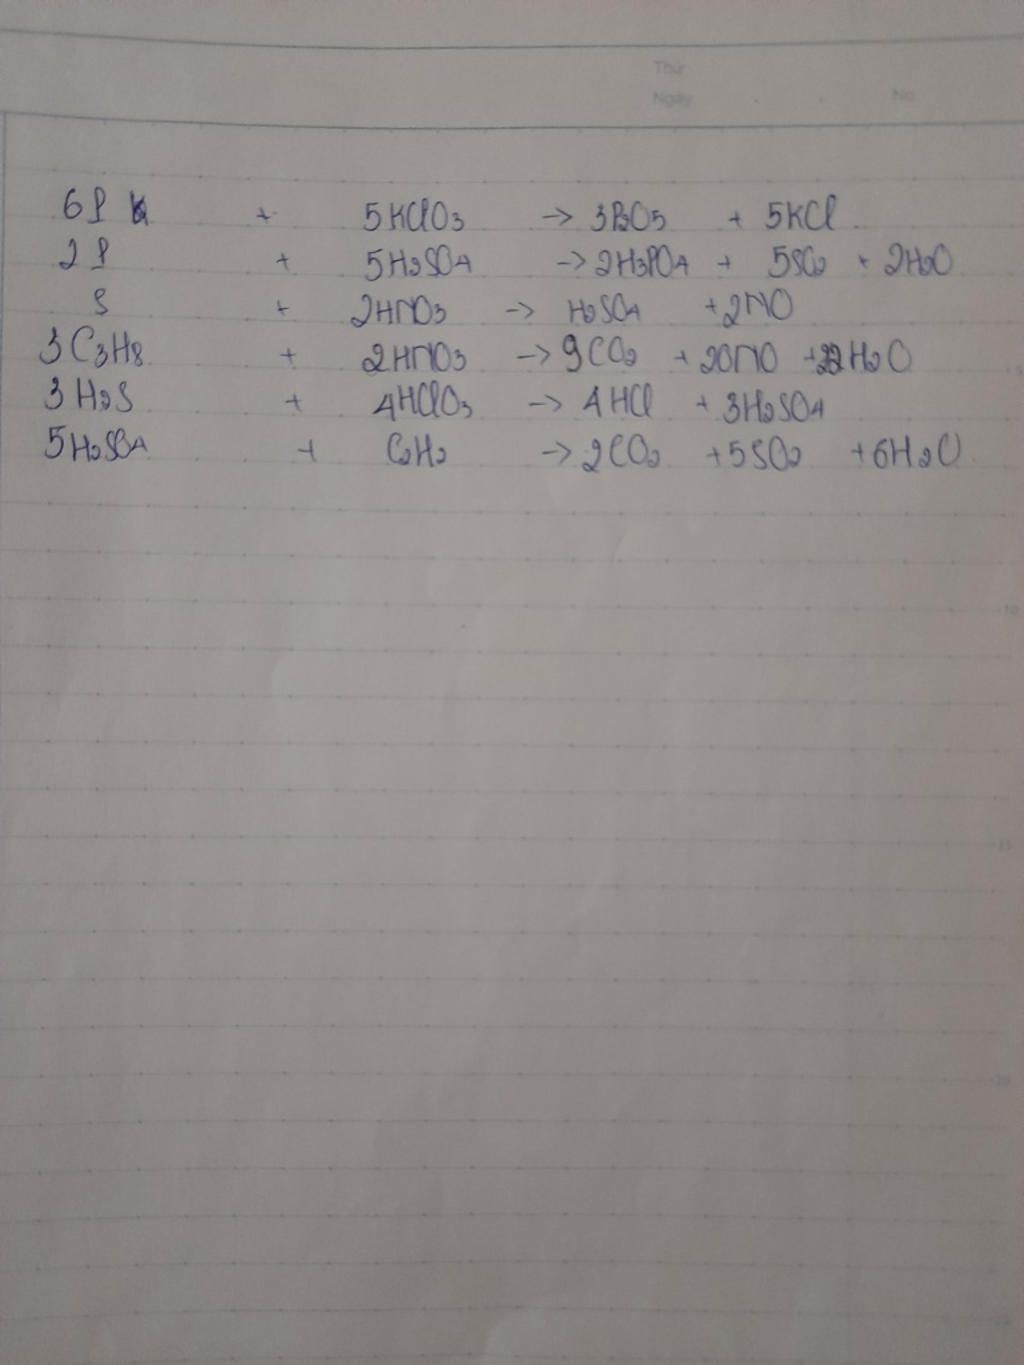 Thứ
Ngày . . No
6P + 5KClO3 -> 3P2O5 + 5KCl
2P + 5H2SO4 -> 2H3PO4 + 5SO2 + 2H2O
S + 2HNO3 -> H2SO4 + 2NO
3C3H8 + 2HNO3 -> 9CO2 + 20NO + 22H2O
3H2S + 4HClO3 -> 4HCl + 3H2SO4
5H2SO4 + C2H2 -> 2CO2 + 5SO2 + 6H2O
10
15
20